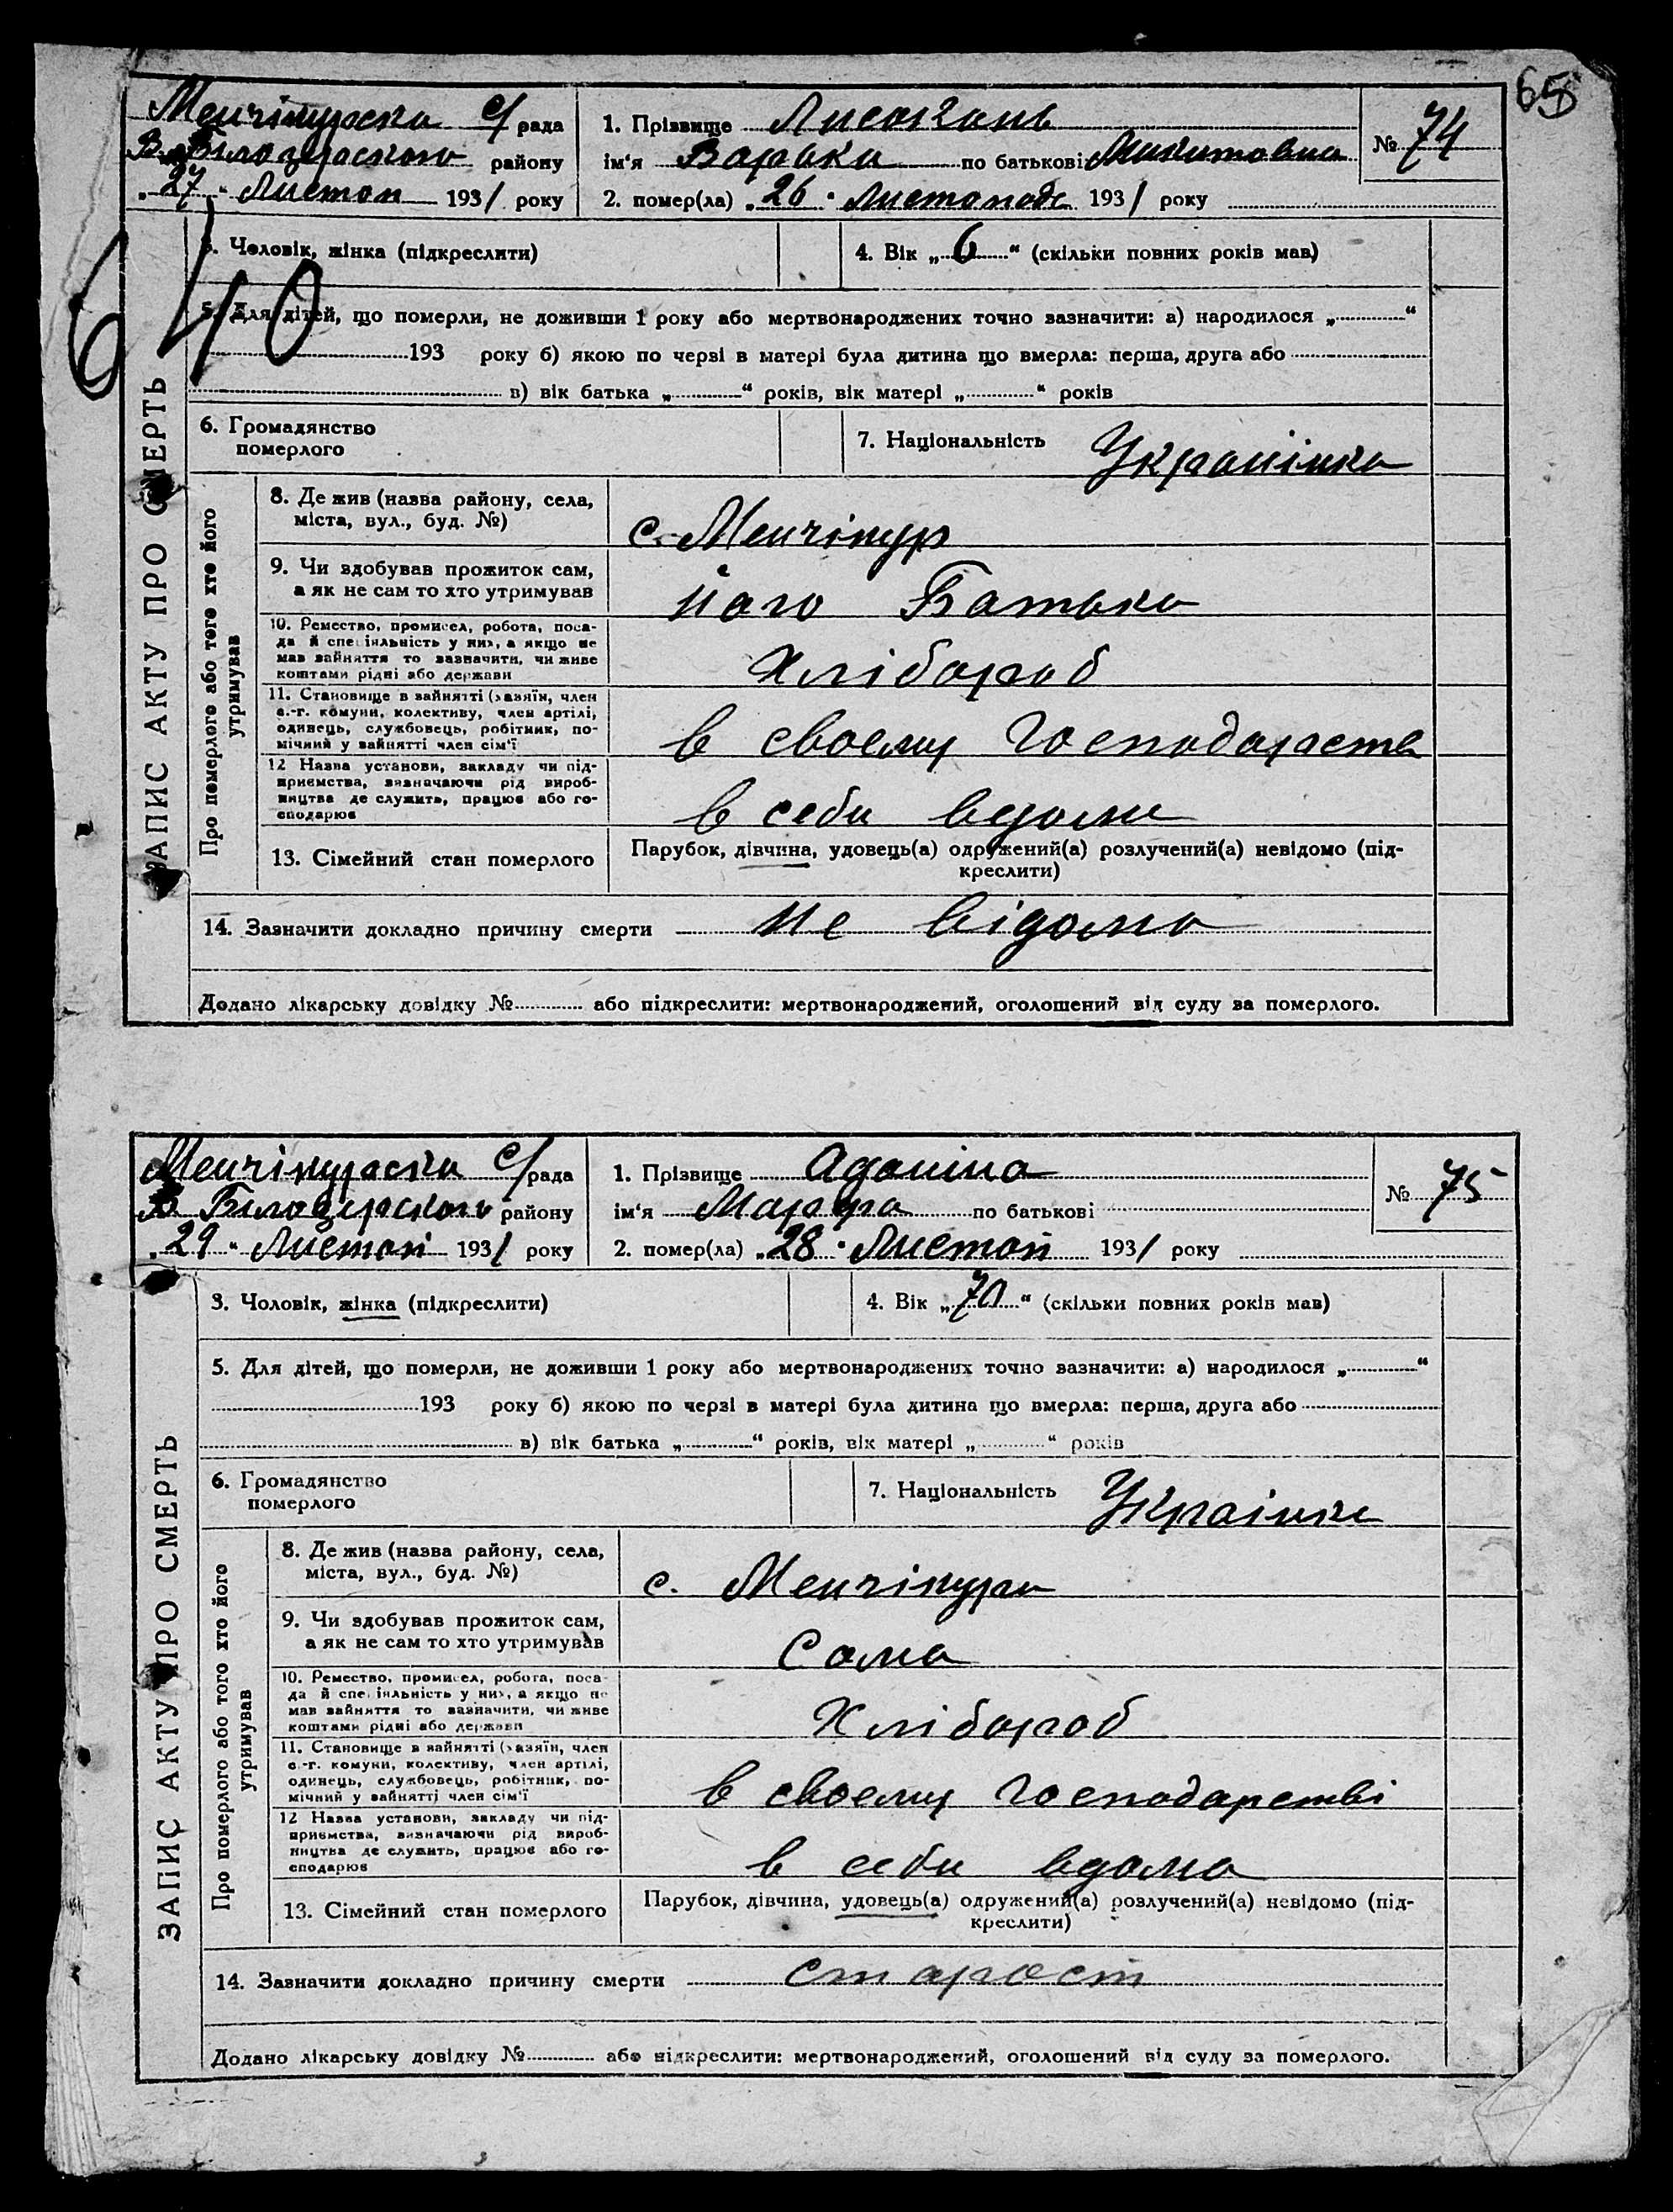 65
Менчікурска с/рада
В. Білозірського району
„27“ Листоп 1931 року
1. Прізвище Лисокань
ім'я Варька по батькові Микитовна
2. помер(ла) „26“ Листопада 1931 року
№ 74
640
ЗАПИС АКТУ ПРО СМЕРТЬ
3. Чоловік, жінка (підкреслити)
4. Вік „6“ (скільки повних років мав)
5. Для дітей, що померли, не доживши 1 року або мертвонароджених точно зазначити: а) народилося „ “
193 року б) якою по черзі в матері була дитина що вмерла: перша, друга або
в) вік батька „ “ років, вік матері „ “ років
6. Громадянство
померлого
7. Національність Украиінка
Про померлого або того хто його
утримував
8. Де жив (назва району, села,
міста, вул., буд. №)
с. Менчікур
9. Чи здобував прожиток сам,
а як не сам то хто утримував
його Батько
10. Ремество, промисел, робота, поса-
да й спеціяльність у них, а якщо не
мав зайняття то зазначити, чи живе
коштами рідні або держави
Хлібороб
11. Становище в зайнятті (хазяїн, член
с.-г. комуни, колективу, член артілі,
одинець, службовець, робітник, по-
мічний у зайнятті член сім'ї
в своєму господарств
12 Назва установи, закладу чи під-
приємства, визначаючи рід вироб-
ництва де служить, працює або го-
сподарює
в себи вдома
13. Сімейний стан померлого
Парубок, дівчина, удовець(а) одружений(а) розлучений(а) невідомо (під-
креслити)
14. Зазначити докладно причину смерти не відомо
Додано лікарську довідку № або підкреслити: мертвонароджений, оголошений від суду за померлого.
Менчікурска с/рада
В Білозірського району
„29“ Листоп 1931 року
1. Прізвище Адоніна
ім'я Марфа по батькові
2. помер(ла) „28“ Листоп 1931 року
№ 75
ЗАПИС АКТУ ПРО СМЕРТЬ
3. Чоловік, жінка (підкреслити)
4. Вік „70“ (скільки повних років мав)
5. Для дітей, що померли, не доживши 1 року або мертвонароджених точно зазначити: а) народилося „ “
193 року б) якою по черзі в матері була дитина що вмерла: перша, друга або
в) вік батька „ “ років, вік матері „ “ років
6. Громадянство
померлого
7. Національність Украінка
Про померлого або того хто його
утримував
8. Де жив (назва району, села,
міста, вул., буд. №)
с. Менчікури
9. Чи здобував прожиток сам,
а як не сам то хто утримував
Сама
10. Ремество, промисел, робота, поса-
да й спеціяльність у них, а якщо не
мав зайняття то зазначити, чи живе
коштами рідні або держави
Хлібороб
11. Становище в зайнятті (хазяїн, член
с.-г. комуни, колективу, член артілі,
одинець, службовець, робітник, по-
мічний у зайнятті член сім'ї
в своєму господарстві
12 Назва установи, закладу чи під-
приємства, визначаючи рід вироб-
ництва де служить, працює або го-
сподарює
в себи вдома
13. Сімейний стан померлого
Парубок, дівчина, удовець(а) одружений(а) розлучений(а) невідомо (під-
креслити)
14. Зазначити докладно причину смерти старост
Додано лікарську довідку № або підкреслити: мертвонароджений, оголошений від суду за померлого.